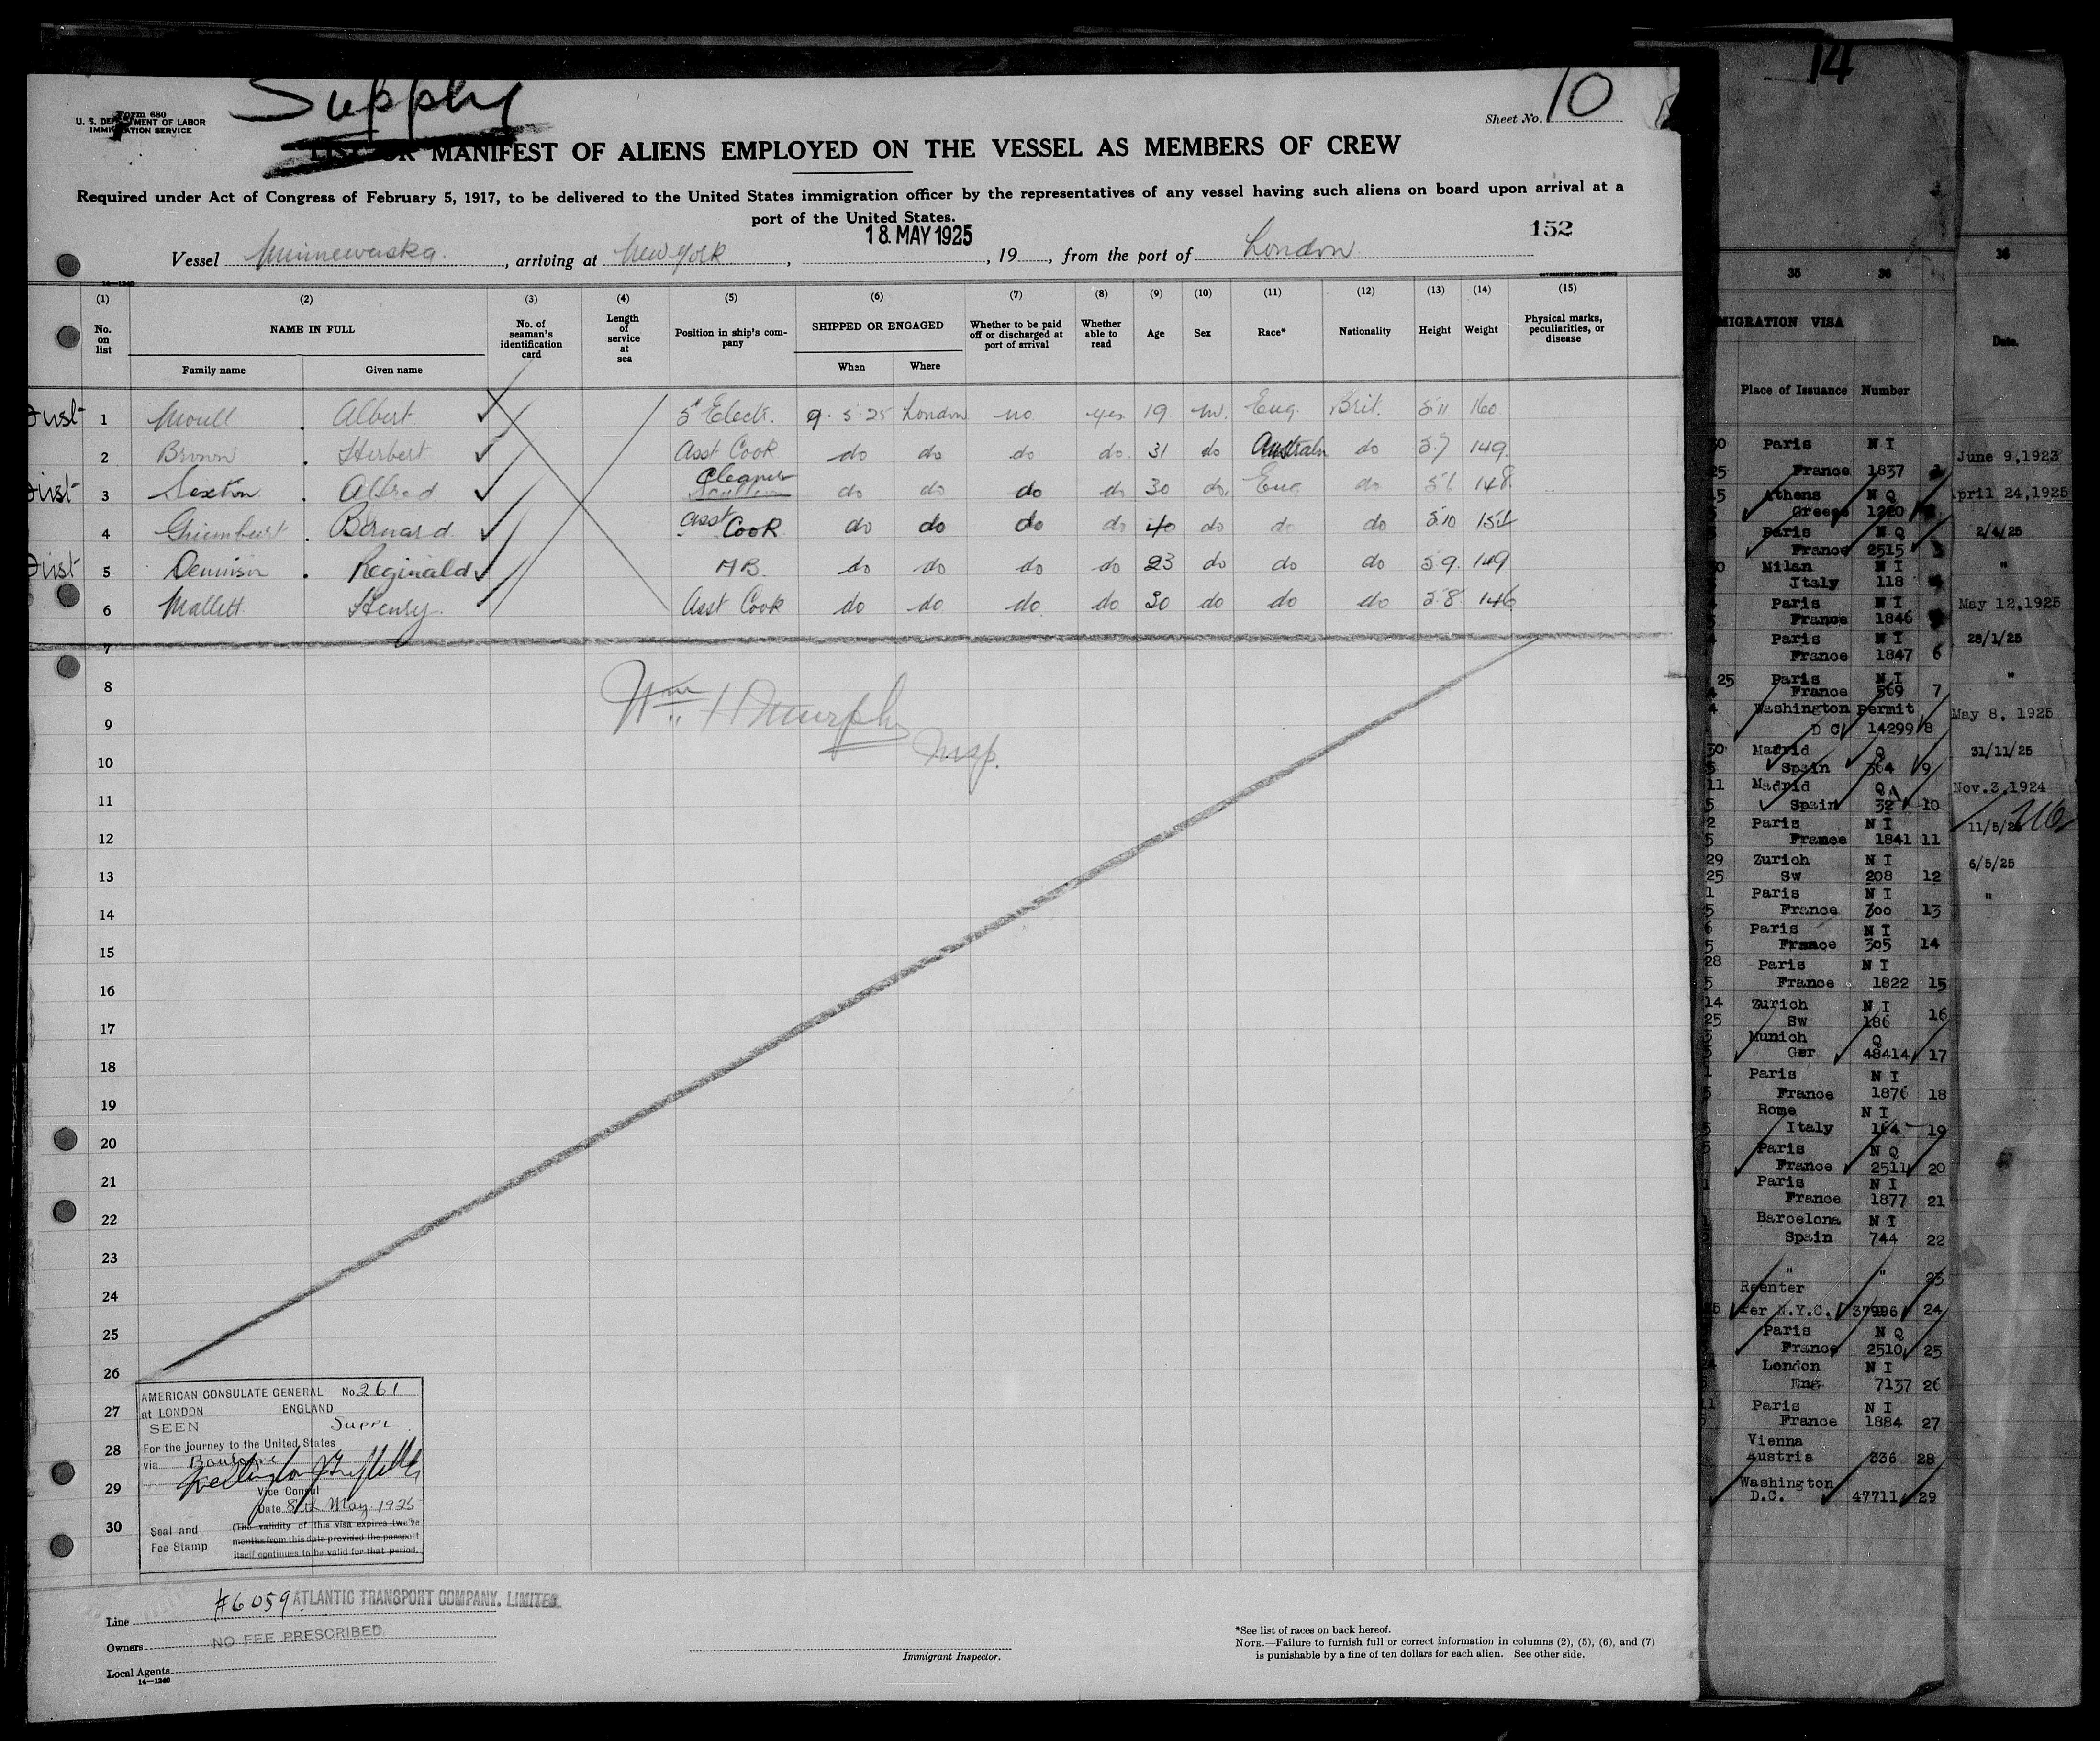 Supply
Form 680
U. S. DEPARTMENT OF LABOR
IMMIGRATION SERVICE
Sheet No. 10
LIST OR MANIFEST OF ALIENS EMPLOYED ON THE VESSEL AS MEMBERS OF CREW
Required under Act of Congress of February 5, 1917, to be delivered to the United States immigration officer by the representatives of any vessel having such aliens on board upon arrival at a
port of the United States.
152
Vessel Minnewaska, arriving at New York, 18 MAY 1925, 19, from the port of London
14—1240
(1) (2) (3) (4) (5) (6) (7) (8) (9) (10) (11) (12) (13) (14) (15)
No. on list
NAME IN FULL
Family name Given name
No. of seaman's identification card
Length of service at sea
Position in ship's company
SHIPPED OR ENGAGED
When Where
Whether to be paid off or discharged at port of arrival
Whether able to read
Age Sex Race* Nationality Height Weight
Physical marks, peculiarities, or disease
1 Moull Albert Elect. 9.5.25 London no yes 19 m. Eng. Brit. 5.11 160
2 Brown Herbert Asst Cook do do do do 31 do Australn do 5.7 149
3 Sexton Alfred Cleaner do do do do 30 do Eng do 148
4 Bernard Asst Cook do do do do 40 do do do 5.10
5 Dennison Reginald AB. do do do do 23 do do do 5.9 149
6 Mallett Henry Asst Cook do do do do 30 do do do 5.8 146
7
8
Wm H Murphy
9
Insp.
10
11
12
13
14
15
16
17
18
19
20
21
22
23
24
25
26
27
28
29
30
AMERICAN CONSULATE GENERAL No 261
at LONDON ENGLAND
SEEN Suppl
For the journey to the United States
via Boulogne
Vice Consul
Date 8th May 1925
Seal and
Fee Stamp
(The validity of this visa expires twelve
months from this date provided the passport
itself continues to be valid for that period.
Line #6059 ATLANTIC TRANSPORT COMPANY, LIMITED.
Owners NO FEE PRESCRIBED
Local Agents
14—1240
Immigrant Inspector.
*See list of races on back hereof.
NOTE.—Failure to furnish full or correct information in columns (2), (5), (6), and (7)
is punishable by a fine of ten dollars for each alien. See other side.
14
35 36 36
MIGRATION VISA
Date.
Place of Issuance Number
Paris N I
June 9,1923
France 1837
Athens N Q April 24,1925
Greece
Paris N Q 2/4/25
France 2515
Milan N I "
Italy 118
Paris N I May 12,1925
France 1846
Paris N I 28/1/25
France 1847 6
Paris N I "
France 569 7
Washington permit May 8, 1925
D C 14299 8
Madrid Q 31/11/25
Spain 364 9
Madrid Q Nov.3,1924
Spain 32 10
Paris N I
France 1841 11
Zurich N I 6/5/25
Sw 208 12
Paris N I "
France 300 13
Paris N I
France 305 14
Paris N I
France 1822 15
Zurich N I
Sw 186 16
Munich Q
Ger 48414 17
Paris N I
France 1876 18
Rome N I
Italy 164 19
Paris N Q
France 2511 20
Paris N I
France 1877 21
Barcelona N I
Spain 744 22
" " 23
Reenter
Per N.Y.C. 37996 24
Paris N Q
France 2510 25
London N I
Eng. 7137 26
Paris N I
France 1884 27
Vienna
Austria 336 28
Washington
D.C. 47711 29